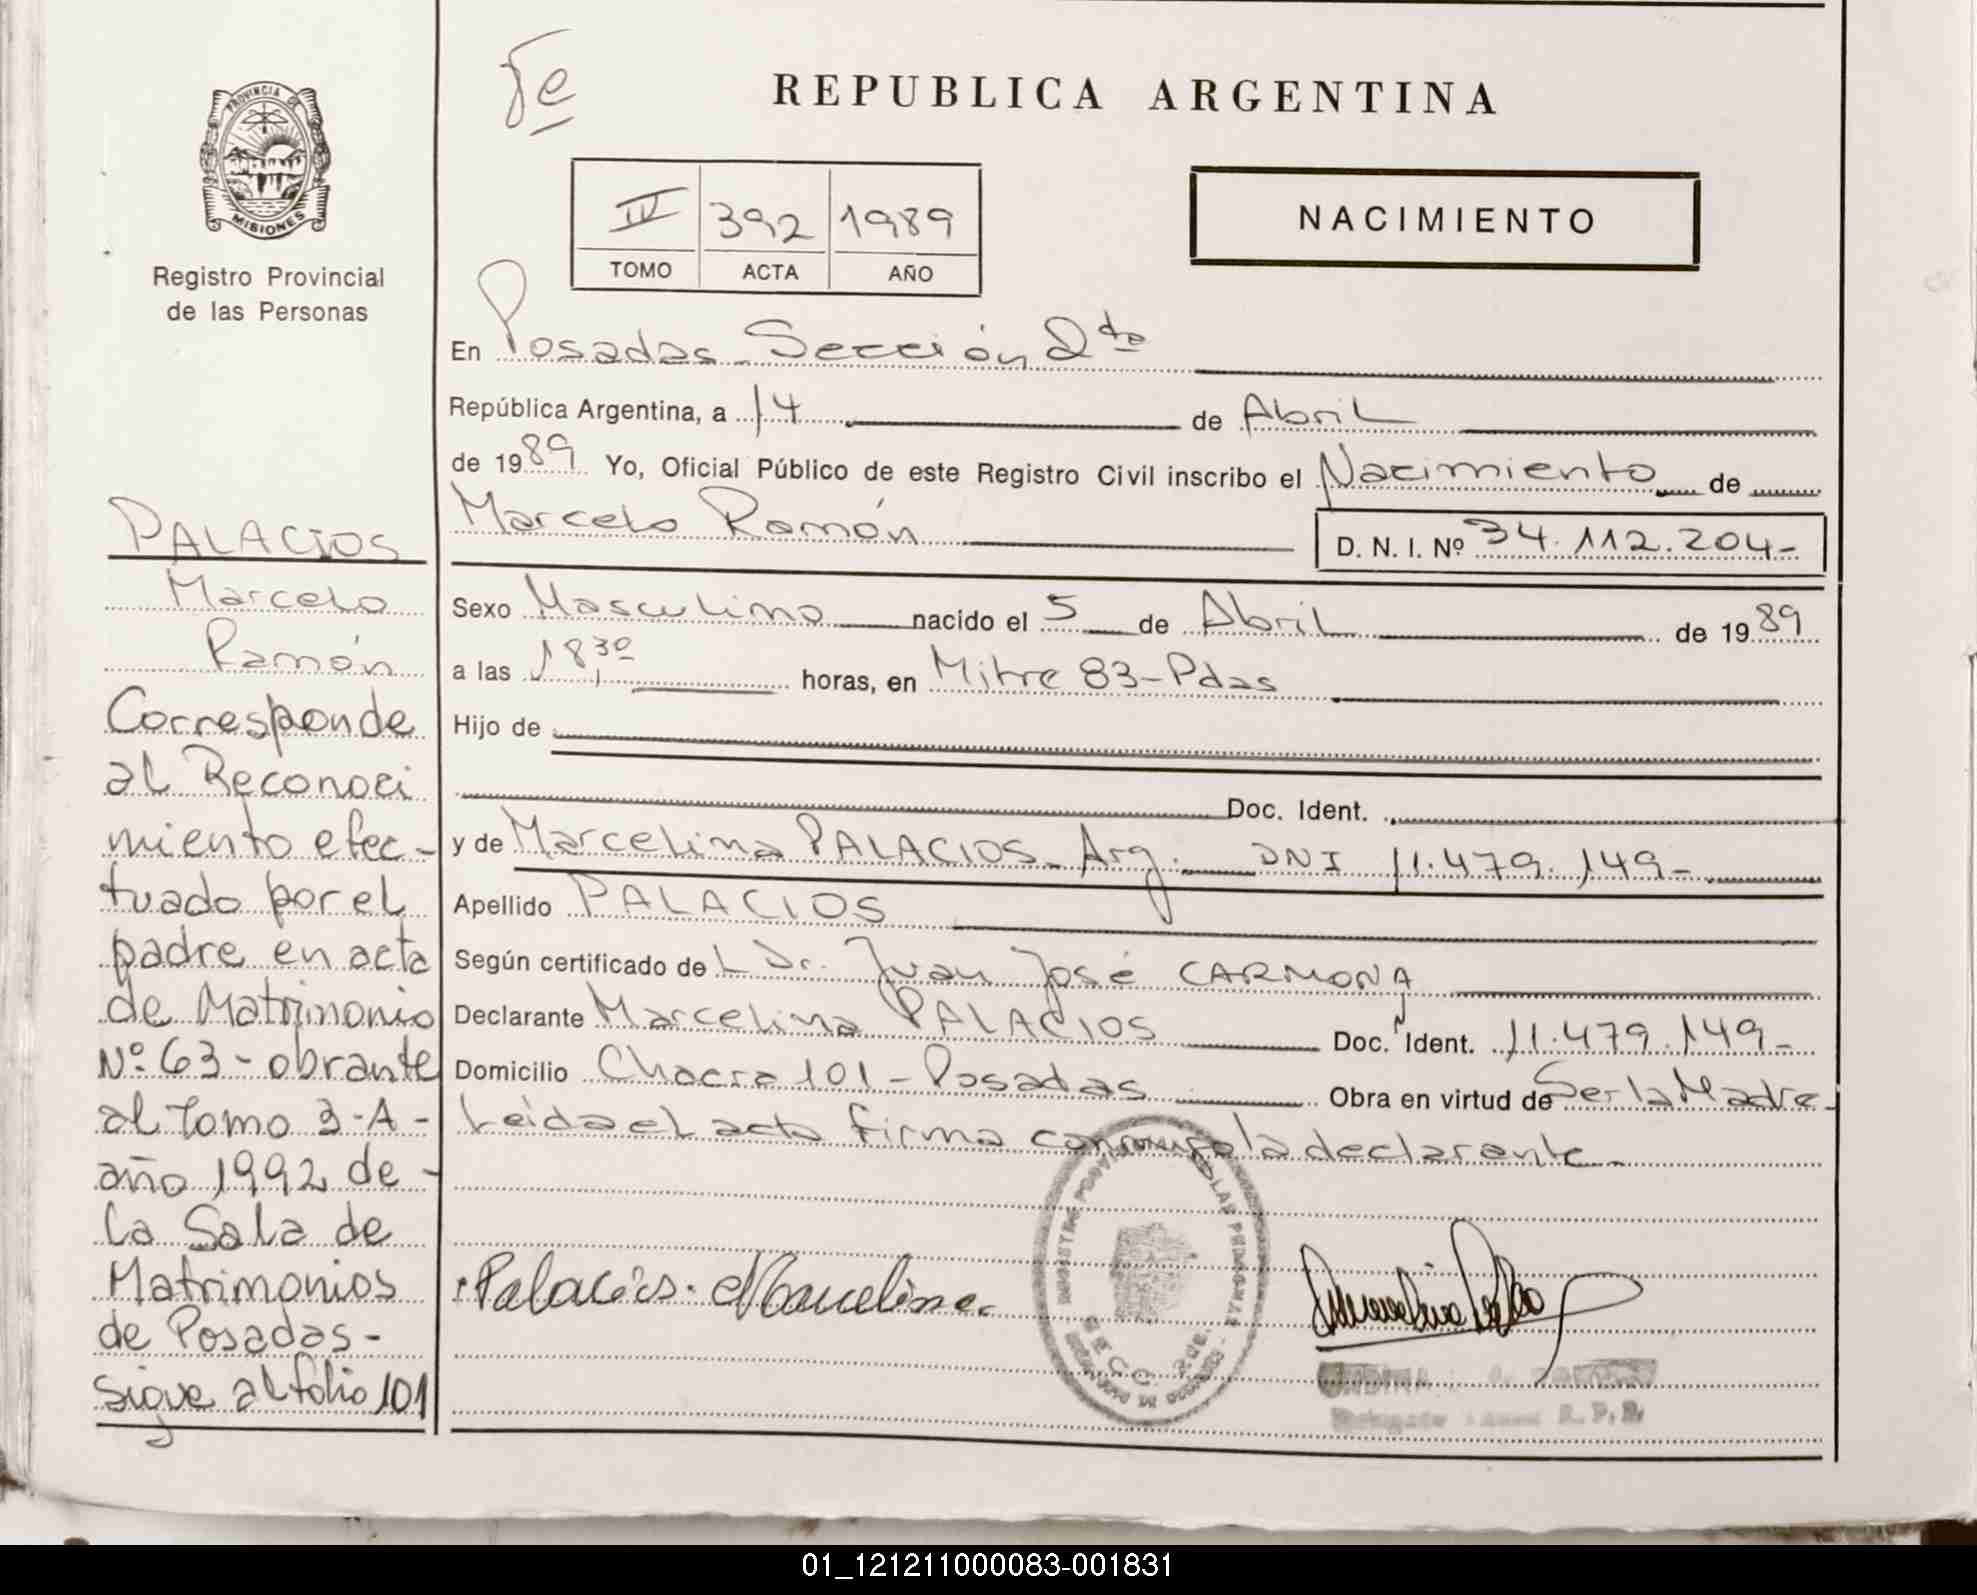 Fe
REPUBLICA ARGENTINA
PROVINCIA DE
MISIONES
Registro Provincial
de las Personas
IV 392 1989
TOMO ACTA AÑO
NACIMIENTO
En Posadas - Sección 2da
República Argentina, a 14 de Abril
de 1989 Yo, Oficial Público de este Registro Civil inscribo el Nacimiento de
Marcelo Ramón D. N. I. Nº 34.112.204-
Sexo Masculino nacido el 5 de Abril de 1989
a las 18,30 horas, en Mitre 83-Pdas
Hijo de
Doc. Ident.
y de Marcelina PALACIOS - Arg. DNI 11.479.149-
Apellido PALACIOS
Según certificado del Dr. Juan José CARMONA
Declarante Marcelina PALACIOS Doc. Ident. 11.479.149-
Domicilio Chacra 101 - Posadas Obra en virtud de Ser la Madre-
Leida el acta firma conmigo la declarante-
Palacios Marcelina
SECC. 2da.
R.P.P.
PALACIOS
Marcelo
Ramón
Corresponde
al Reconoci
miento efec-
tuado por el
padre en acta
de Matrimonio
Nº 63 - obrante
al Tomo 3-A-
año 1992 de-
la Sala de
Matrimonios
de Posadas-
sigue al folio 101
01_121211000083-001831